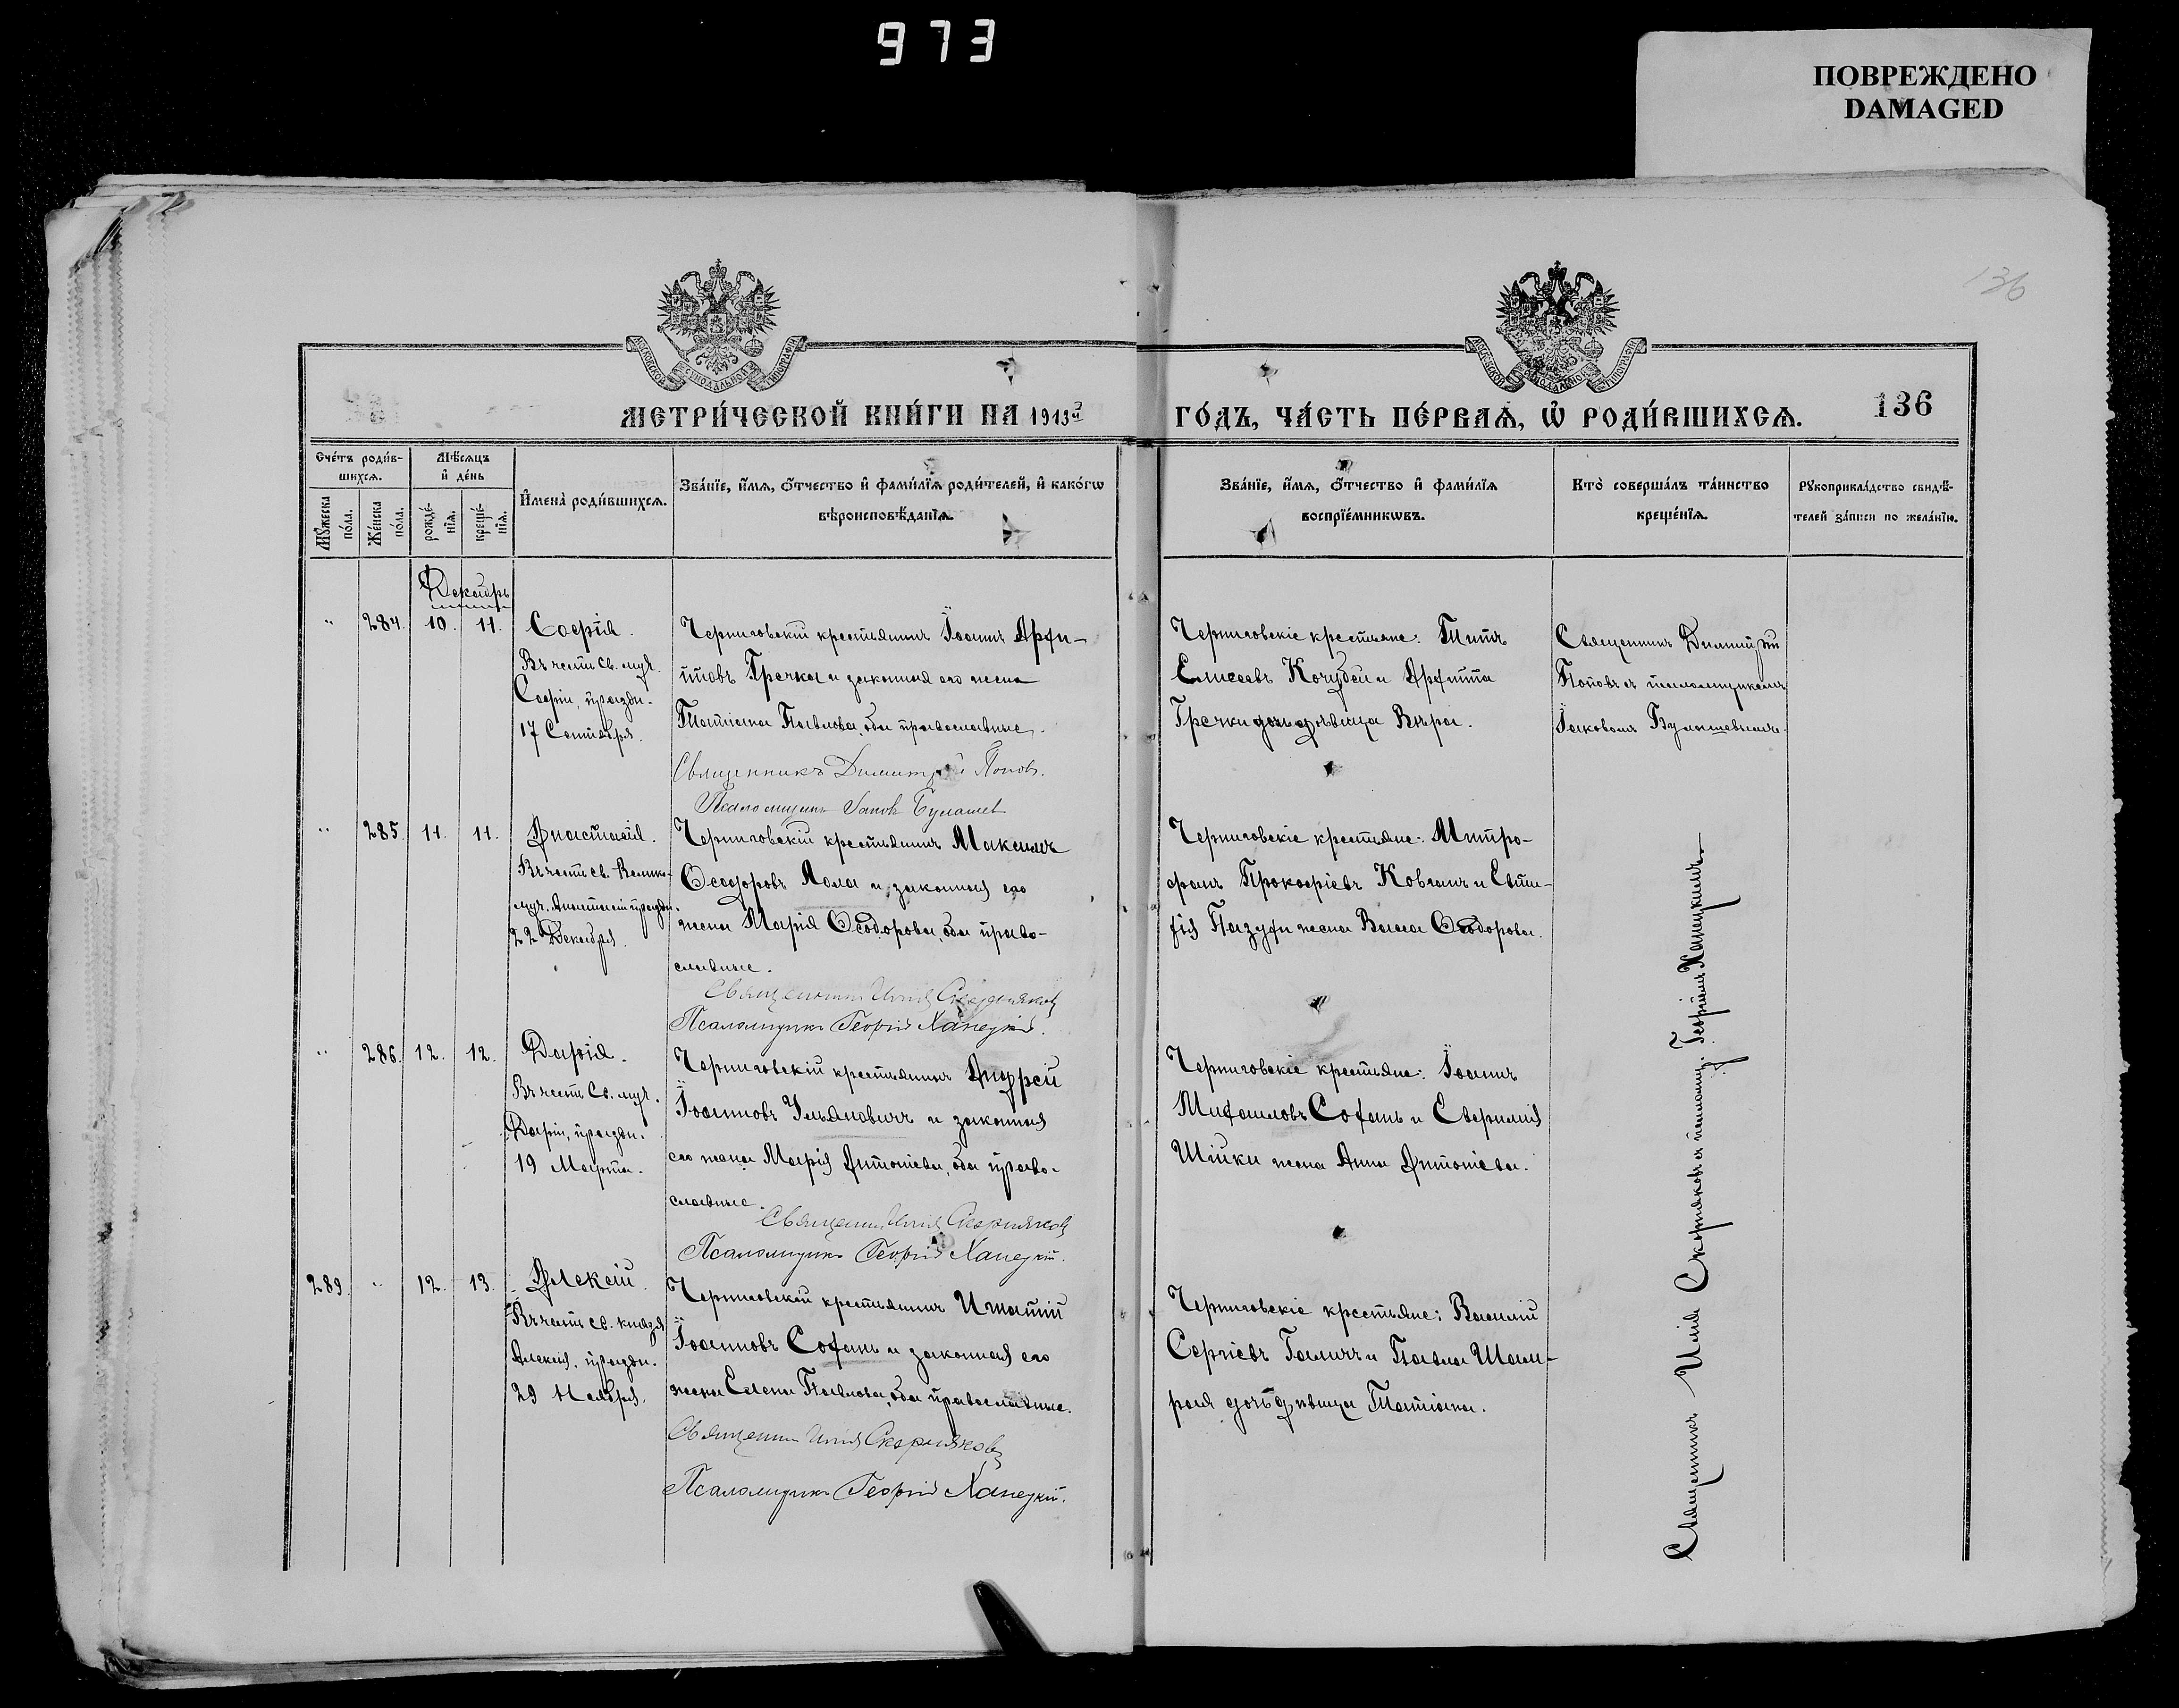 973
ПОВРЕЖДЕНО
DAMAGED
136
МЕТРИ́ЧЕСКОЙ КНИ́ГИ НА 1913й
ГО́ДЪ, ЧА́СТЬ ПЕ́РВАѦ, Ѽ РОДИ́ВШИХСѦ.
136
Сче́тъ роди́в-
шихсѧ.
Мѣ́сѧцъ
и҆ де́нь
Мꙋ́жеска
по́ла.
Же́нска
по́ла.
рожде́-
нїѧ.
креще́-
нїѧ.
И҆мена̀ роди́вшихсѧ.
Зва́нїе, и҆́мѧ, ѻ҆́тчество и҆ фами́лїѧ роди́телей, и҆ како́гѡ
вѣроисповѣ́данїѧ.
Зва́нїе, и҆́мѧ, ѻ҆́тчество и҆ фами́лїѧ
воспрїе́мникѡвъ.
Кто̀ соверша́лъ та́инство
креще́нїѧ.
Рꙋкоприкла́дство свидѣ́-
телей за́писи по жела́нїю.
Декабрь
" 284. 10. 11. Софія.
Въ честь св. муч.
Софіи, праздн.
17 Сентября.
Черниговскій крестьянинъ Іоаннъ Архи-
повъ Гречка и законная его жена
Татіана Павлова, оба православные.
Священникъ Димитрій Попов.
Псаломщикъ Іаковъ Булашев
Черниговскіе крестьяне: Титъ
Елисеевъ Кочубей и Архиппа
Гречки дочь дѣвица Вѣра.
Священникъ Димитрій
Поповъ съ псаломщикомъ
Іаковомъ Булашевымъ.
" 285. 11. 11. Анастасія.
Въ честь св. Велико-
муч. Анастасіи праздн.
22 Декабря.
Черниговскій крестьянинъ Максимъ
Ѳеодоровъ и законная его
жена Марія Ѳеодорова, оба право-
славные.
Священникъ Илія Скорняковъ
Псаломщикъ Георгій Ханецкій.
Черниговскіе крестьяне: Митро-
фанъ Прокофіевъ Ковганъ и Евти-
хія жена Васса Ѳеодорова.
" 286. 12. 12. Дарія.
Въ честь св. муч.
Даріи, праздн.
19 Марта.
Черниговскій крестьянинъ Андрей
Іоанновъ Ульяновичъ и законная
его жена Марія Антоніева, оба право-
славные.
Священникъ Илія Скорняковъ
Псаломщикъ Георгій Ханецкій.
Черниговскіе крестьяне: Іоаннъ
Михаиловъ Сохань и Евфимія
Шійки жена Анна Антоніева.
289. " 12. 13. Алексій.
Въ честь св. князя
Алексія, праздн.
29 Ноября.
Черниговскій крестьянинъ Игнатій
Іоанновъ Сохань и законная его
жена Елена Павлова, оба православные.
Священникъ Илія Скорняковъ
Псаломщикъ Георгій Ханецкій.
Черниговскіе крестьяне: Василій
Сергіевъ Галичъ и Павла Шам-
рая дочь дѣвица Татіана.
Священникъ Илія Скорняковъ съ псаломщ. Георгіемъ Ханецкимъ.